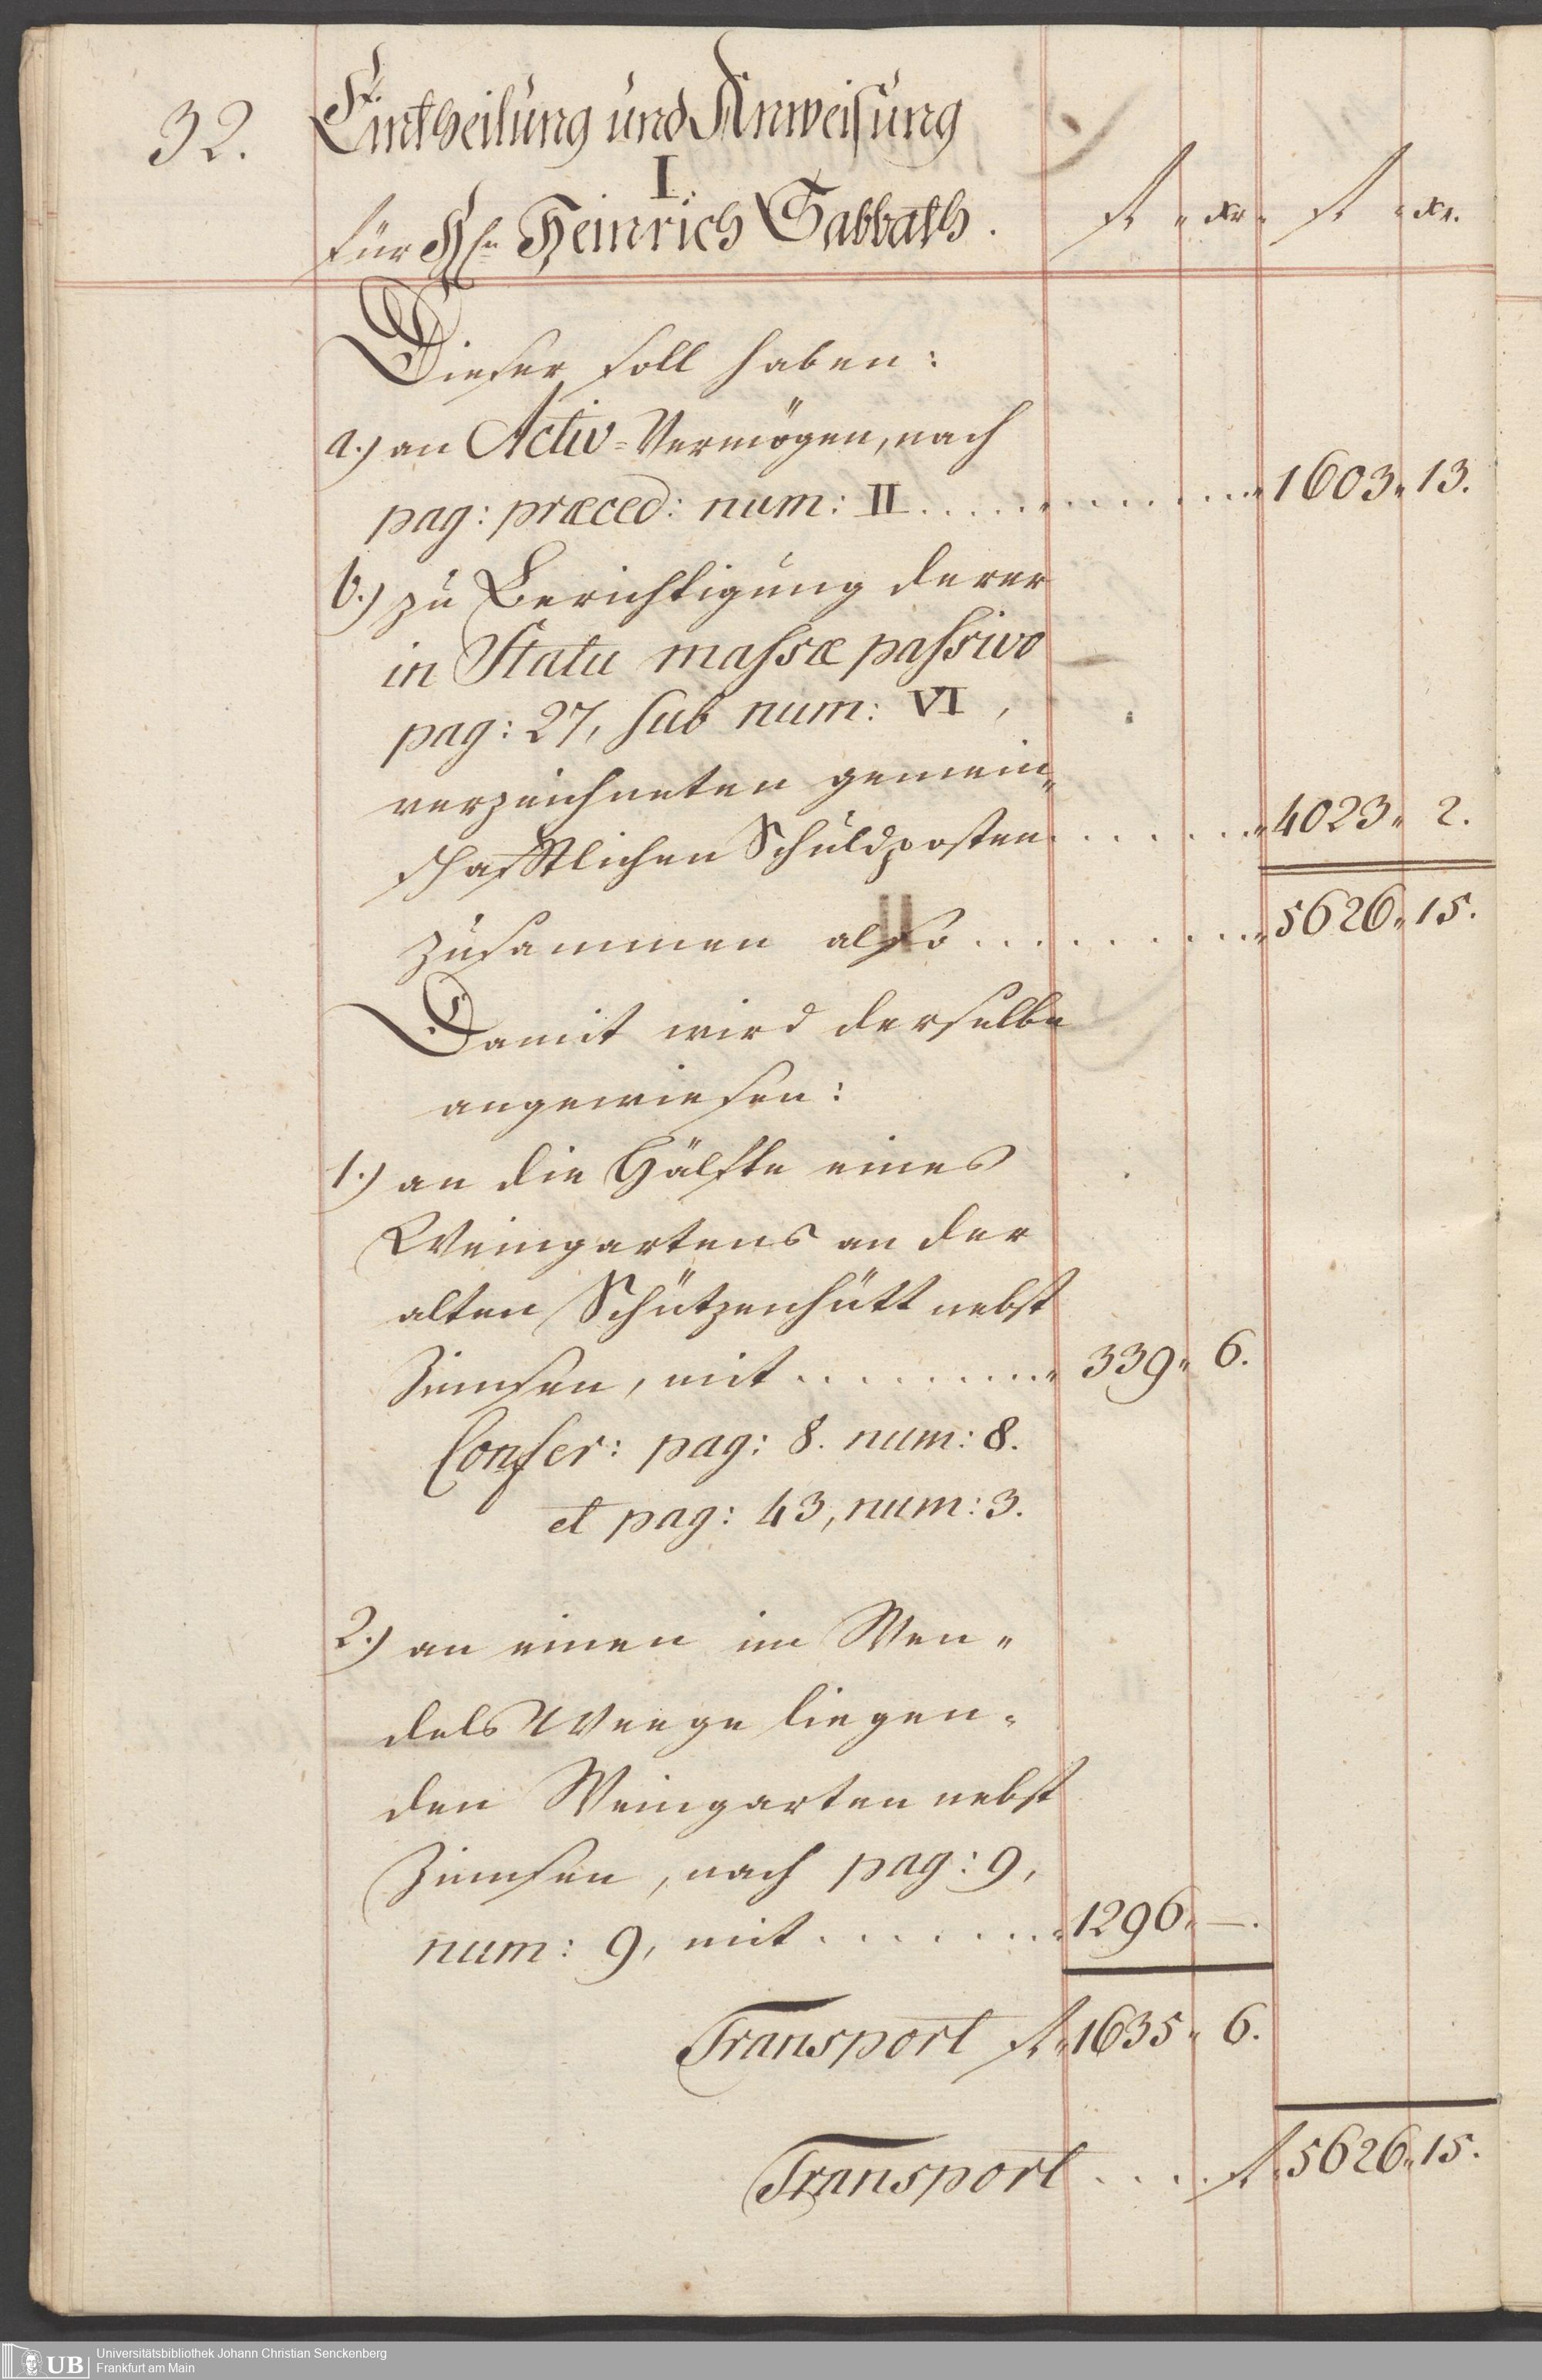 32.
Eintheilung und Anweisung
I.
für Hrn Heinrich Sabbath.
fl " xr " fl " xr.
Dieser soll haben:
a.) an Activ=Vermögen, nach
pag: præced: num: II. . . . . . . . . . . . . " 1603 " 13.
b.) zu Berichtigung derer
in Statu massæ passivo
pag: 27, sub num: VI,
verzeichneten gemein„
schafftlichen Schuldposten . . . . . . " 4023 " 2.
zusammen also . . . . . . . . . . " 5626 " 15.
Damit wird derselbe
angewiesen:
1.) an die Hälfte eines
Weingartens an der
alten Schützenhütt nebst
Zinnsen, mit . . . . . . . . . " 339 " 6.
Confer: pag: 8. num: 8.
et pag: 43, num: 3.
2.) an einen im Wen„
dels Weege liegen„
den Weingarten nebst
Zinnsen, nach pag: 9,
num: 9, mit . . . . . . . " 1296 " —.
Transport fl " 1635 " 6.
Transport . . . . fl " 5626 " 15.
UB
Universitätsbibliothek Johann Christian Senckenberg
Frankfurt am Main